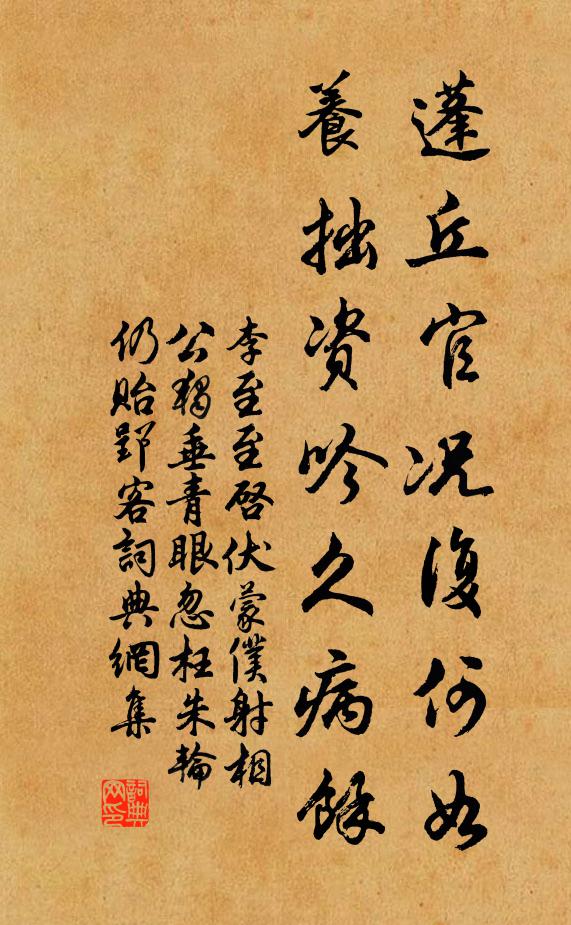 蓬丘官况復何如
養拙資吟久病餘
李至至啓伏蒙僕射相
公獨垂青眼忽枉朱輪
仍貽郢客詞典網集
詞典網印